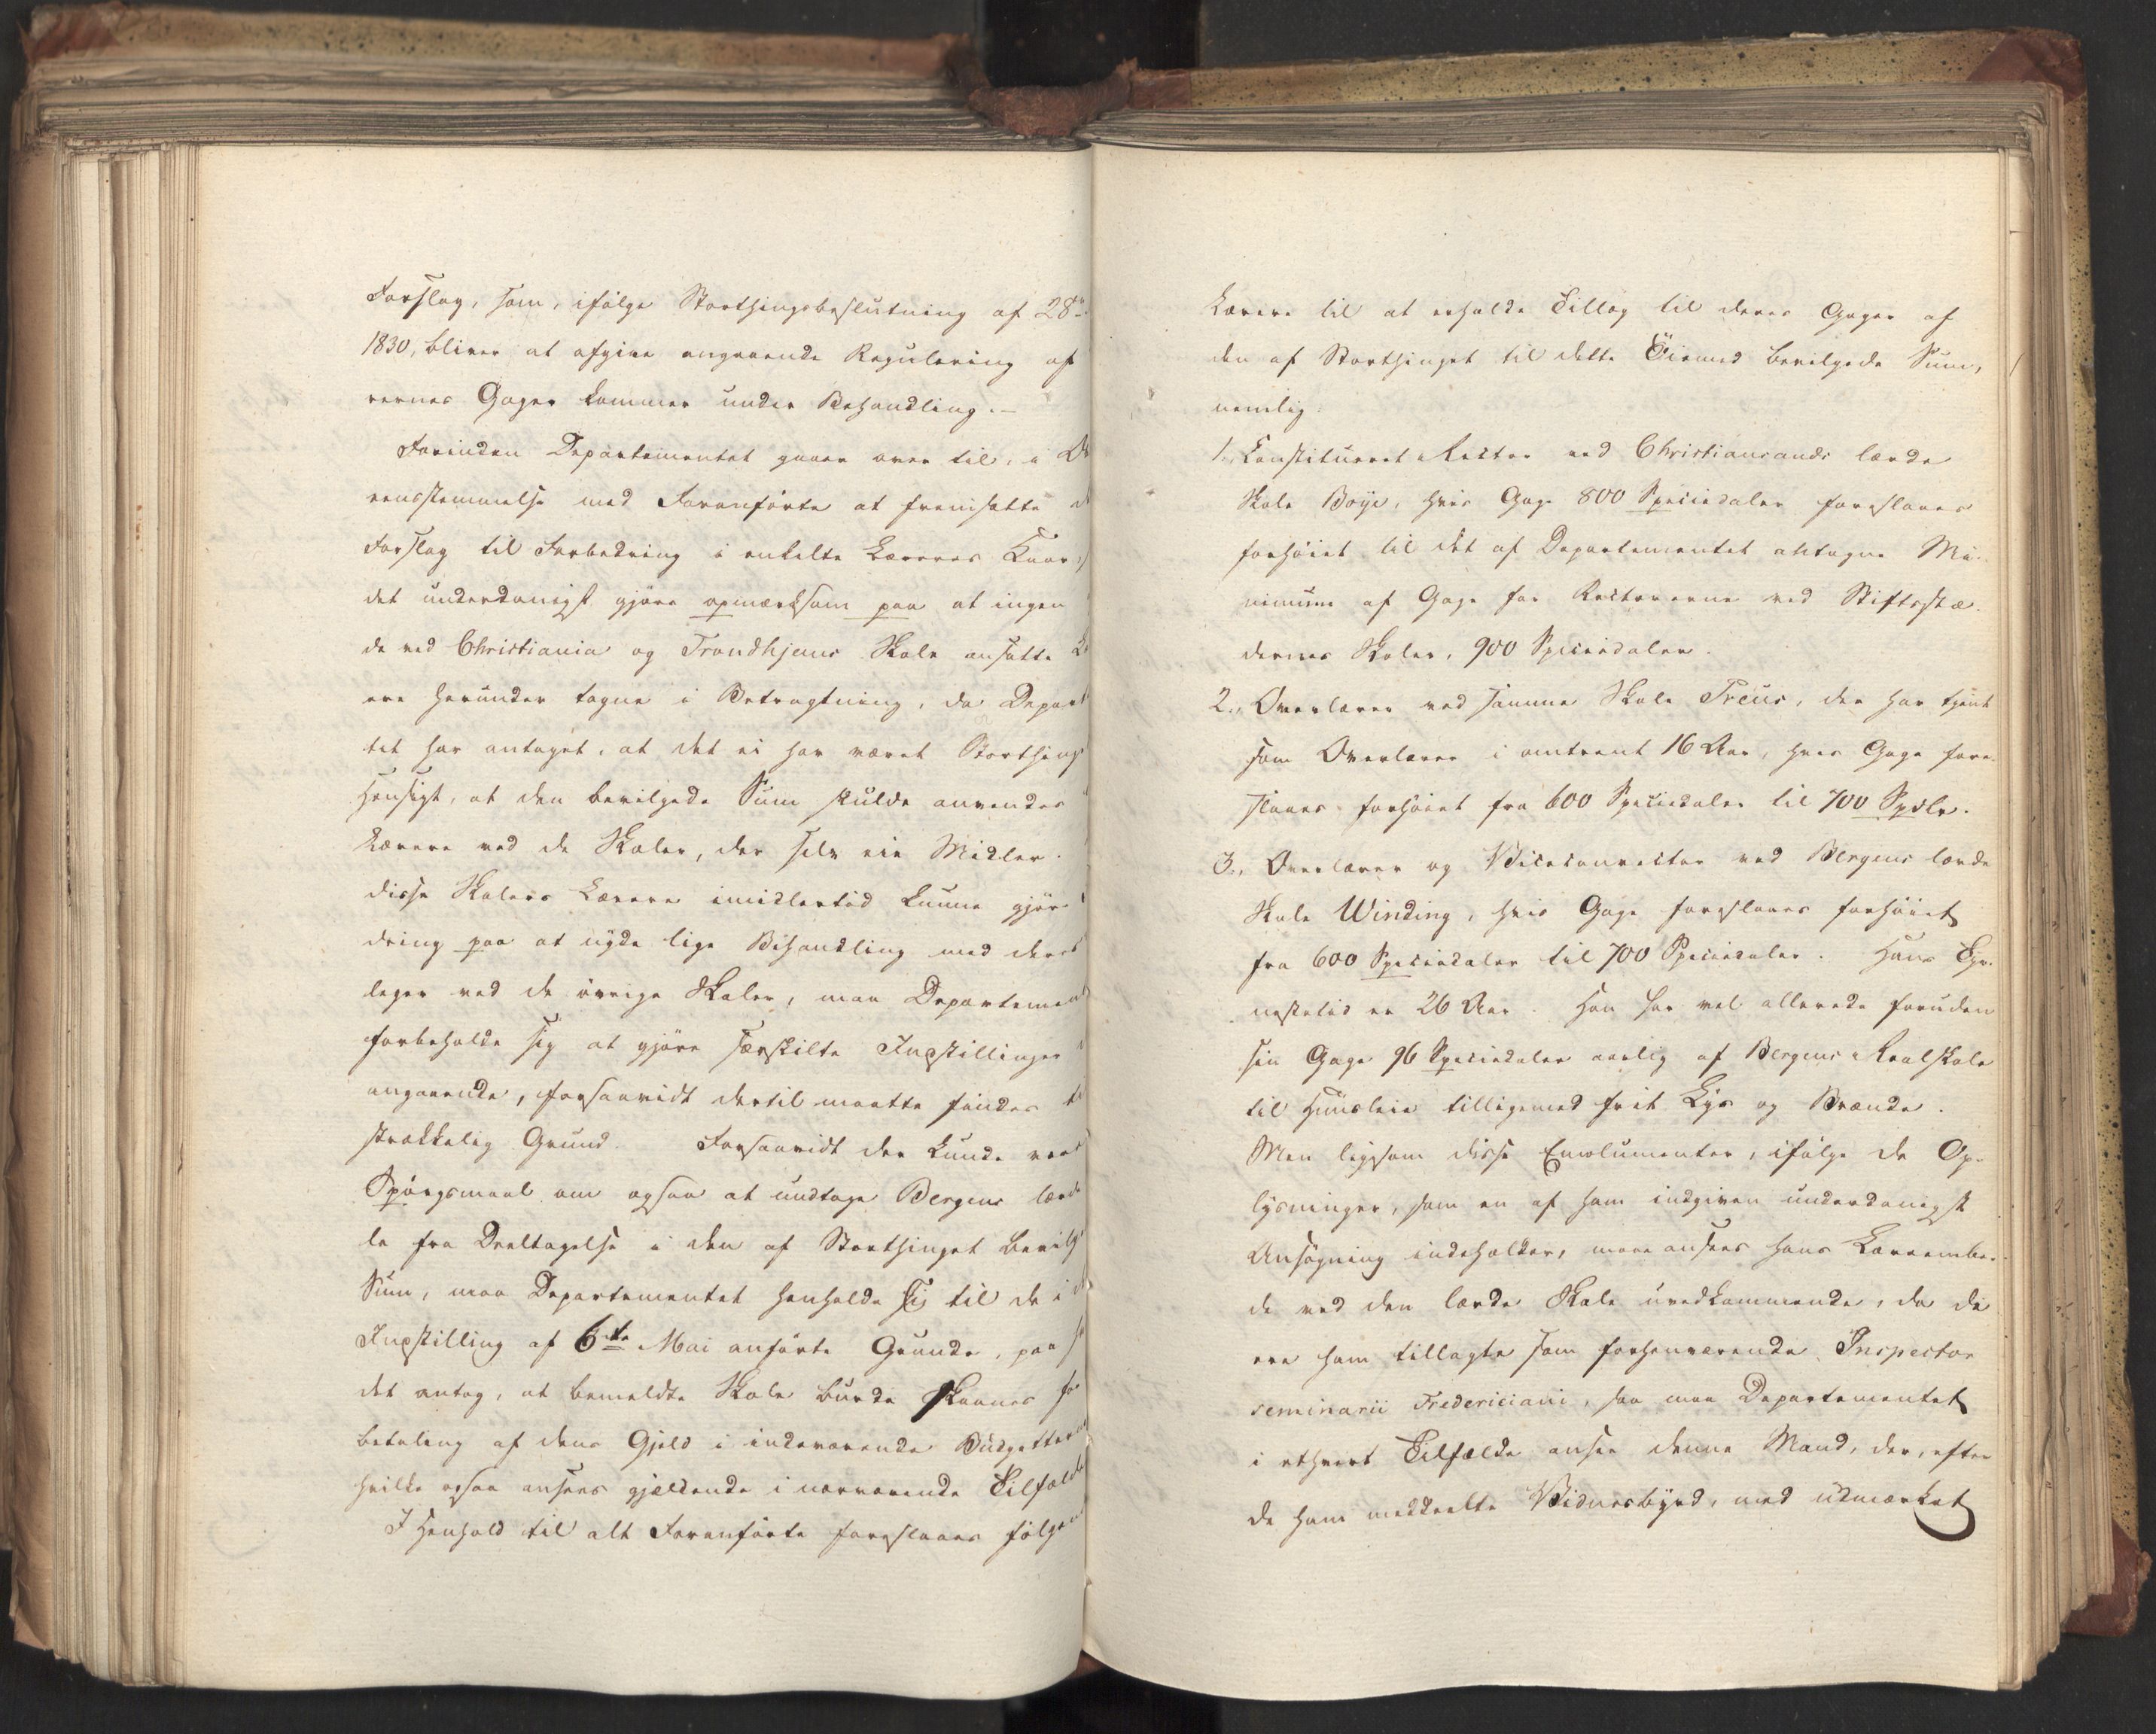 Forslag, som, ifølge Storthingsbeslutning af 28de
1830, bliver at afgive angaaende Regulering af
rernes Gager kommer under Behandling.-
Forinden Departementet gaaer over til, i Ov
rensstemmelse med Foranførte at fremsætte
Forslag til Forbedring i enkelte Læreres Kaar,
det underdanigst gjøre opmærksom paa at ingen
de ved Christiania og Trondhjems Skole ansatte Læ
ere herunder tagne i Betragtning, da Depart
tet har antaget, at det ei har været Storthing
Hensigt, at den bevilgede Sum skulde anvendes
Lærere ved de Skoler, der selv eie Midler.
disse Skolers Lærere imidlertid kunne gjør
dring paa at nyde lige Behandling med deres
leger ved de øvrige Skoler, maa Departement
forbeholde sig at gjøre særskilte Indstillinger
angaaende, forsaavidt dertil maatte findes ti
strækkelig Grund. Forsaavidt der kunde være
Spørgsmaal om ogsaa at undtage Bergens lærde
le fra Deeltagelse i den af Storthinget bevilg
Sum, maa Departementet henholde sig til de i
Indstilling af 6te Mai anførte Grunde, paa
det antog, at bemeldte Skole burde skaanes for
betaling af dens Gjeld i indeværende Budgetter
hvilke ogsaa ansees gjældende i nærværende Tilfælde
I Henhold til alt Foranførte foreslaaes følgen
Lærere til at erholde Tillæg til deres Gager af
den af Storthinget til dette Öiemed bevilgede Sum,
nemlig:
1., Constitueret Rector ved Christiansands lærde
Skole Boye, hvis Gage 800 Speciedaler foreslaaes
forhöiet til det af Departementet antagne Mi-
nimum af Gage for Rectorerne ved Stiftsstæ-
dernes Skoler, 900 Speciedaler.
2., Overlærer ved samme Skole Treus, der har tjent
som Overlærer i omtrent 16 Aar, hvis Gage fore-
slaaes forhöiet fra 600 Speciedaler til 700 Spdlr.
3., Overlærer og Viceconrector ved Bergens lærde
Skole Winding, hvis Gage foreslaaes forhöiet
fra 600 Speciedaler til 700 Speciedaler. Hans Tje-
nestetid er 26 Aar. Han har vel allerede foruden
sin Gage 96 Speciedaler aarlig af Bergens Realskole
til Huusleie tilligemed frit Lys og Brænde.
Men ligesom disse Emolumenter, ifølge de Op-
lysninger, som en af ham indgiven underdanigst
Ansøgning indeholder, maae ansees hans Lærerembe-
de ved den lærde Skole uvedkommende, da de
ere ham tillagte som forhenværende Inspector
seminarii Fredericiani, saa maa Departementet
i ethvert Tilfælde ansee denne Mand, der, efter
de ham meddeelte Vidnesbyrd, med udmærket